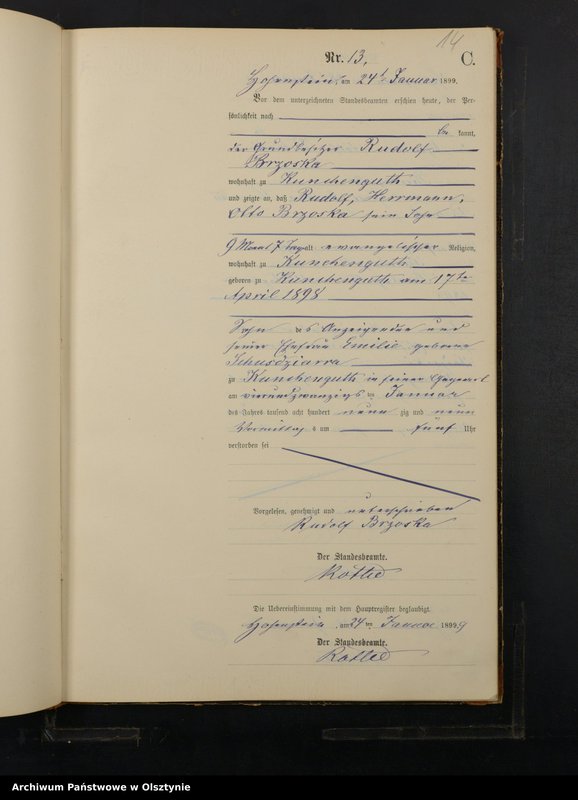 14
Nr. 13.
C.
Hohenstein, am 24ten Januar 1899.
Vor dem unterzeichneten Standesbeamten erschien heute, der Per-
sönlichkeit nach
be kannt,
der Grundbesitzer Rudolf
Brzoska
wohnhaft zu Kunchenguth
und zeigte an, daß Rudolf, Herrmann,
Otto Brzoska sein Sohn
9 Monat 7 Tage alt evangelischer Religion,
wohnhaft zu Kunchenguth
geboren zu Kunchenguth am 17ten
April 1898
Sohn des Anzeigenden und
seiner Ehefrau Emilie geborene
zu Kunchenguth in seiner Gegenwart
am vierundzwanzigsten Januar
des Jahres tausend acht hundert neun zig und neun
Vormittag s um fünf Uhr
verstorben sei
Vorgelesen, genehmigt und unterschrieben
Rudolf Brzoska
Der Standesbeamte.
Die Uebereinstimmung mit dem Hauptregister beglaubigt.
Hohenstein, am 24ten Januar 1899
Der Standesbeamte.
Archiwum Państwowe w Olsztynie